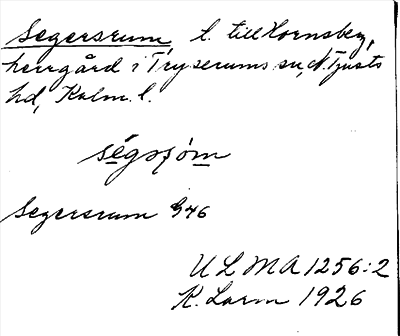 Segersrum, t. till Hornsberg,
herrgård i Tryserums sn, N. Tjusts
hd, Kalm. l.
Segersrum G46
ULMA 1256:2
K. Larm 1926